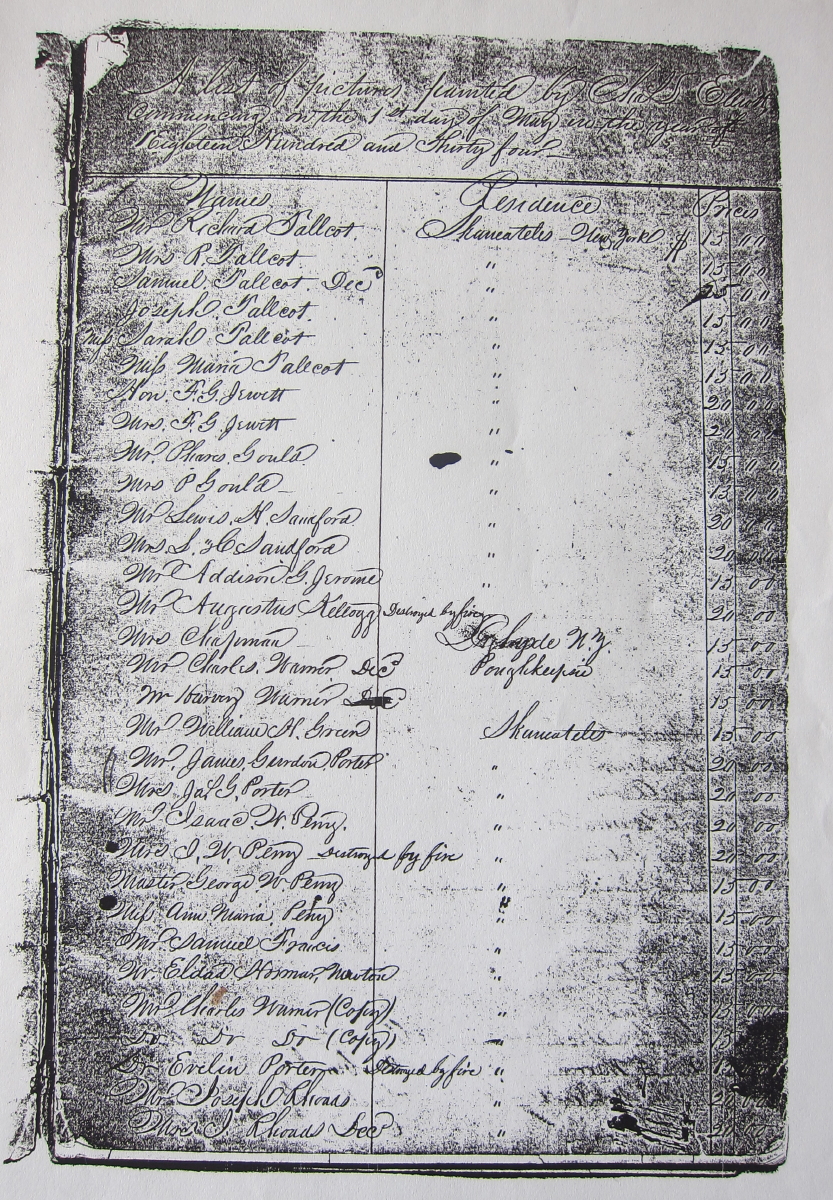 A list of pictures painted by Chas L Elliott
Commencing on the 1st day of May in the year of
Eighteen Hundred and Thirty four
Names Residence Prices
Mr Richard Tallcot. Skaneateles New York $ 15 00
Mrs R Tallcot " 15 00
Samuel Tallcot Decd " 25 00
Joseph Tallcot. " 15 00
Miss Sarah Tallcot " 15 00
Miss Maria Tallcot " 15 00
Hon. F. G. Jewett " 20 00
Mrs. F. G. Jewett " 20 00
Mr. Phares Gould " 15 00
Mrs P Gould " 15 00
Mr Lewis H Sandford " 20 00
Mrs L H Sandford " 20 00
Mr Addison G. Jerome " 15 00
Mr Augustus Kellogg Destroyed by fire 20 00
Mrs Chapman Clyde N.Y. 15 00
Mr Charles Warner Decd Poughkeepsie 15 00
Mr Harvey Warner 15 00
Mr William H. Green Skaneateles 15 00
Mr. James Gurdon Porter " 20 00
Mrs Jas G. Porter " 20 00
Mr Isaac W. Perry. " 20 00
Mrs I. W. Perry Destroyed by fire " 20 00
Master George W Perry " 15 00
Miss Ann Maria Perry " 15 00
Mr Samuel Francis " 15 00
Mr. Eldad Newton " 15 00
Mr Charles Warner (Copy) " 15 00
Do Do Do (Copy) " 15
Dr Evelin Porter Destroyed by fire " 15
Mr Joseph Rhoads " 20
Mrs J Rhoads Decd " 20